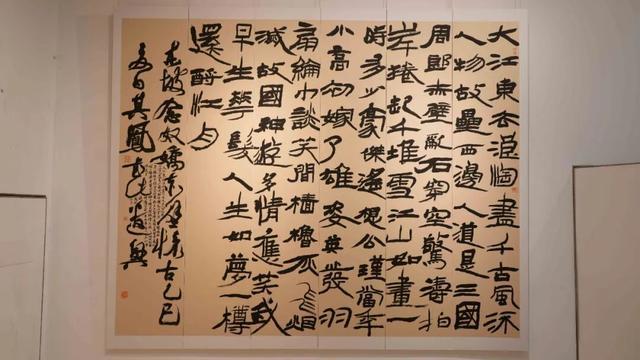 大江東去浪淘盡千古風流
人物故壘西邊人道是三國
周郎赤壁亂石穿空驚濤拍
岸捲起千堆雪江山如畫一
時多少豪傑遙想公瑾當年
小喬初嫁了雄姿英發羽
扇綸巾談笑間檣櫓灰飛煙
滅故國神遊多情應笑我
早生華髮人生如夢一樽
還酹江月
東坡念奴嬌赤壁懷古乙巳
夏日其